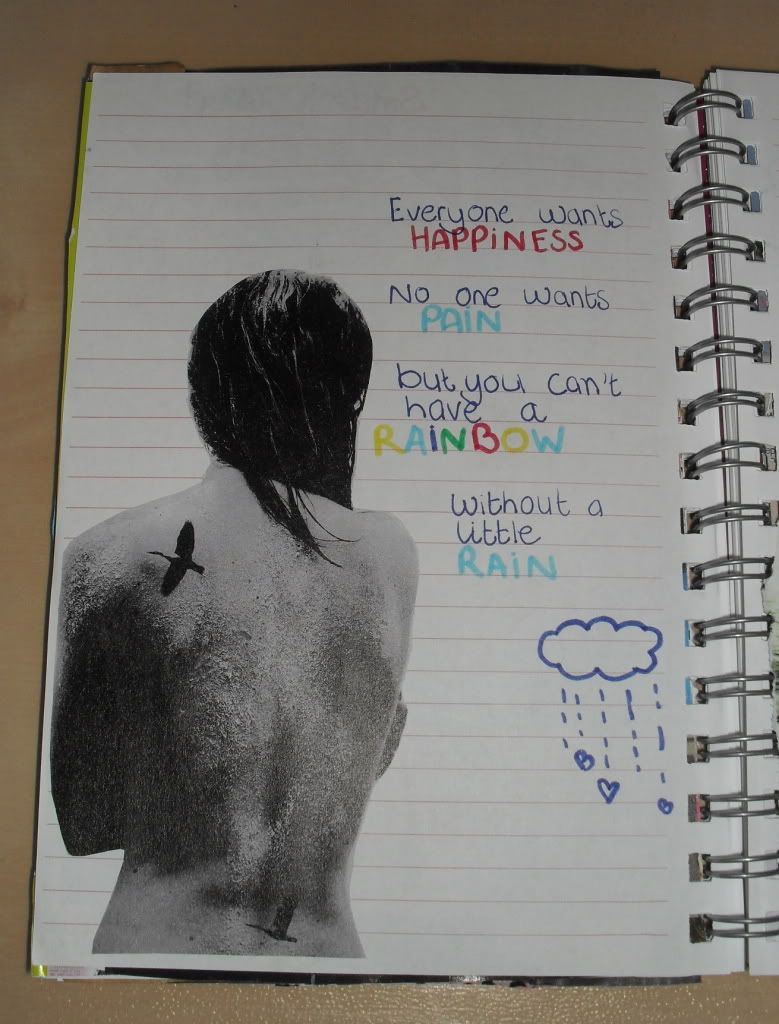 Everyone wants
HAPPiNESS
No one wants
PAiN
but you can't
have a
RAiNBOW
without a
little
RAiN